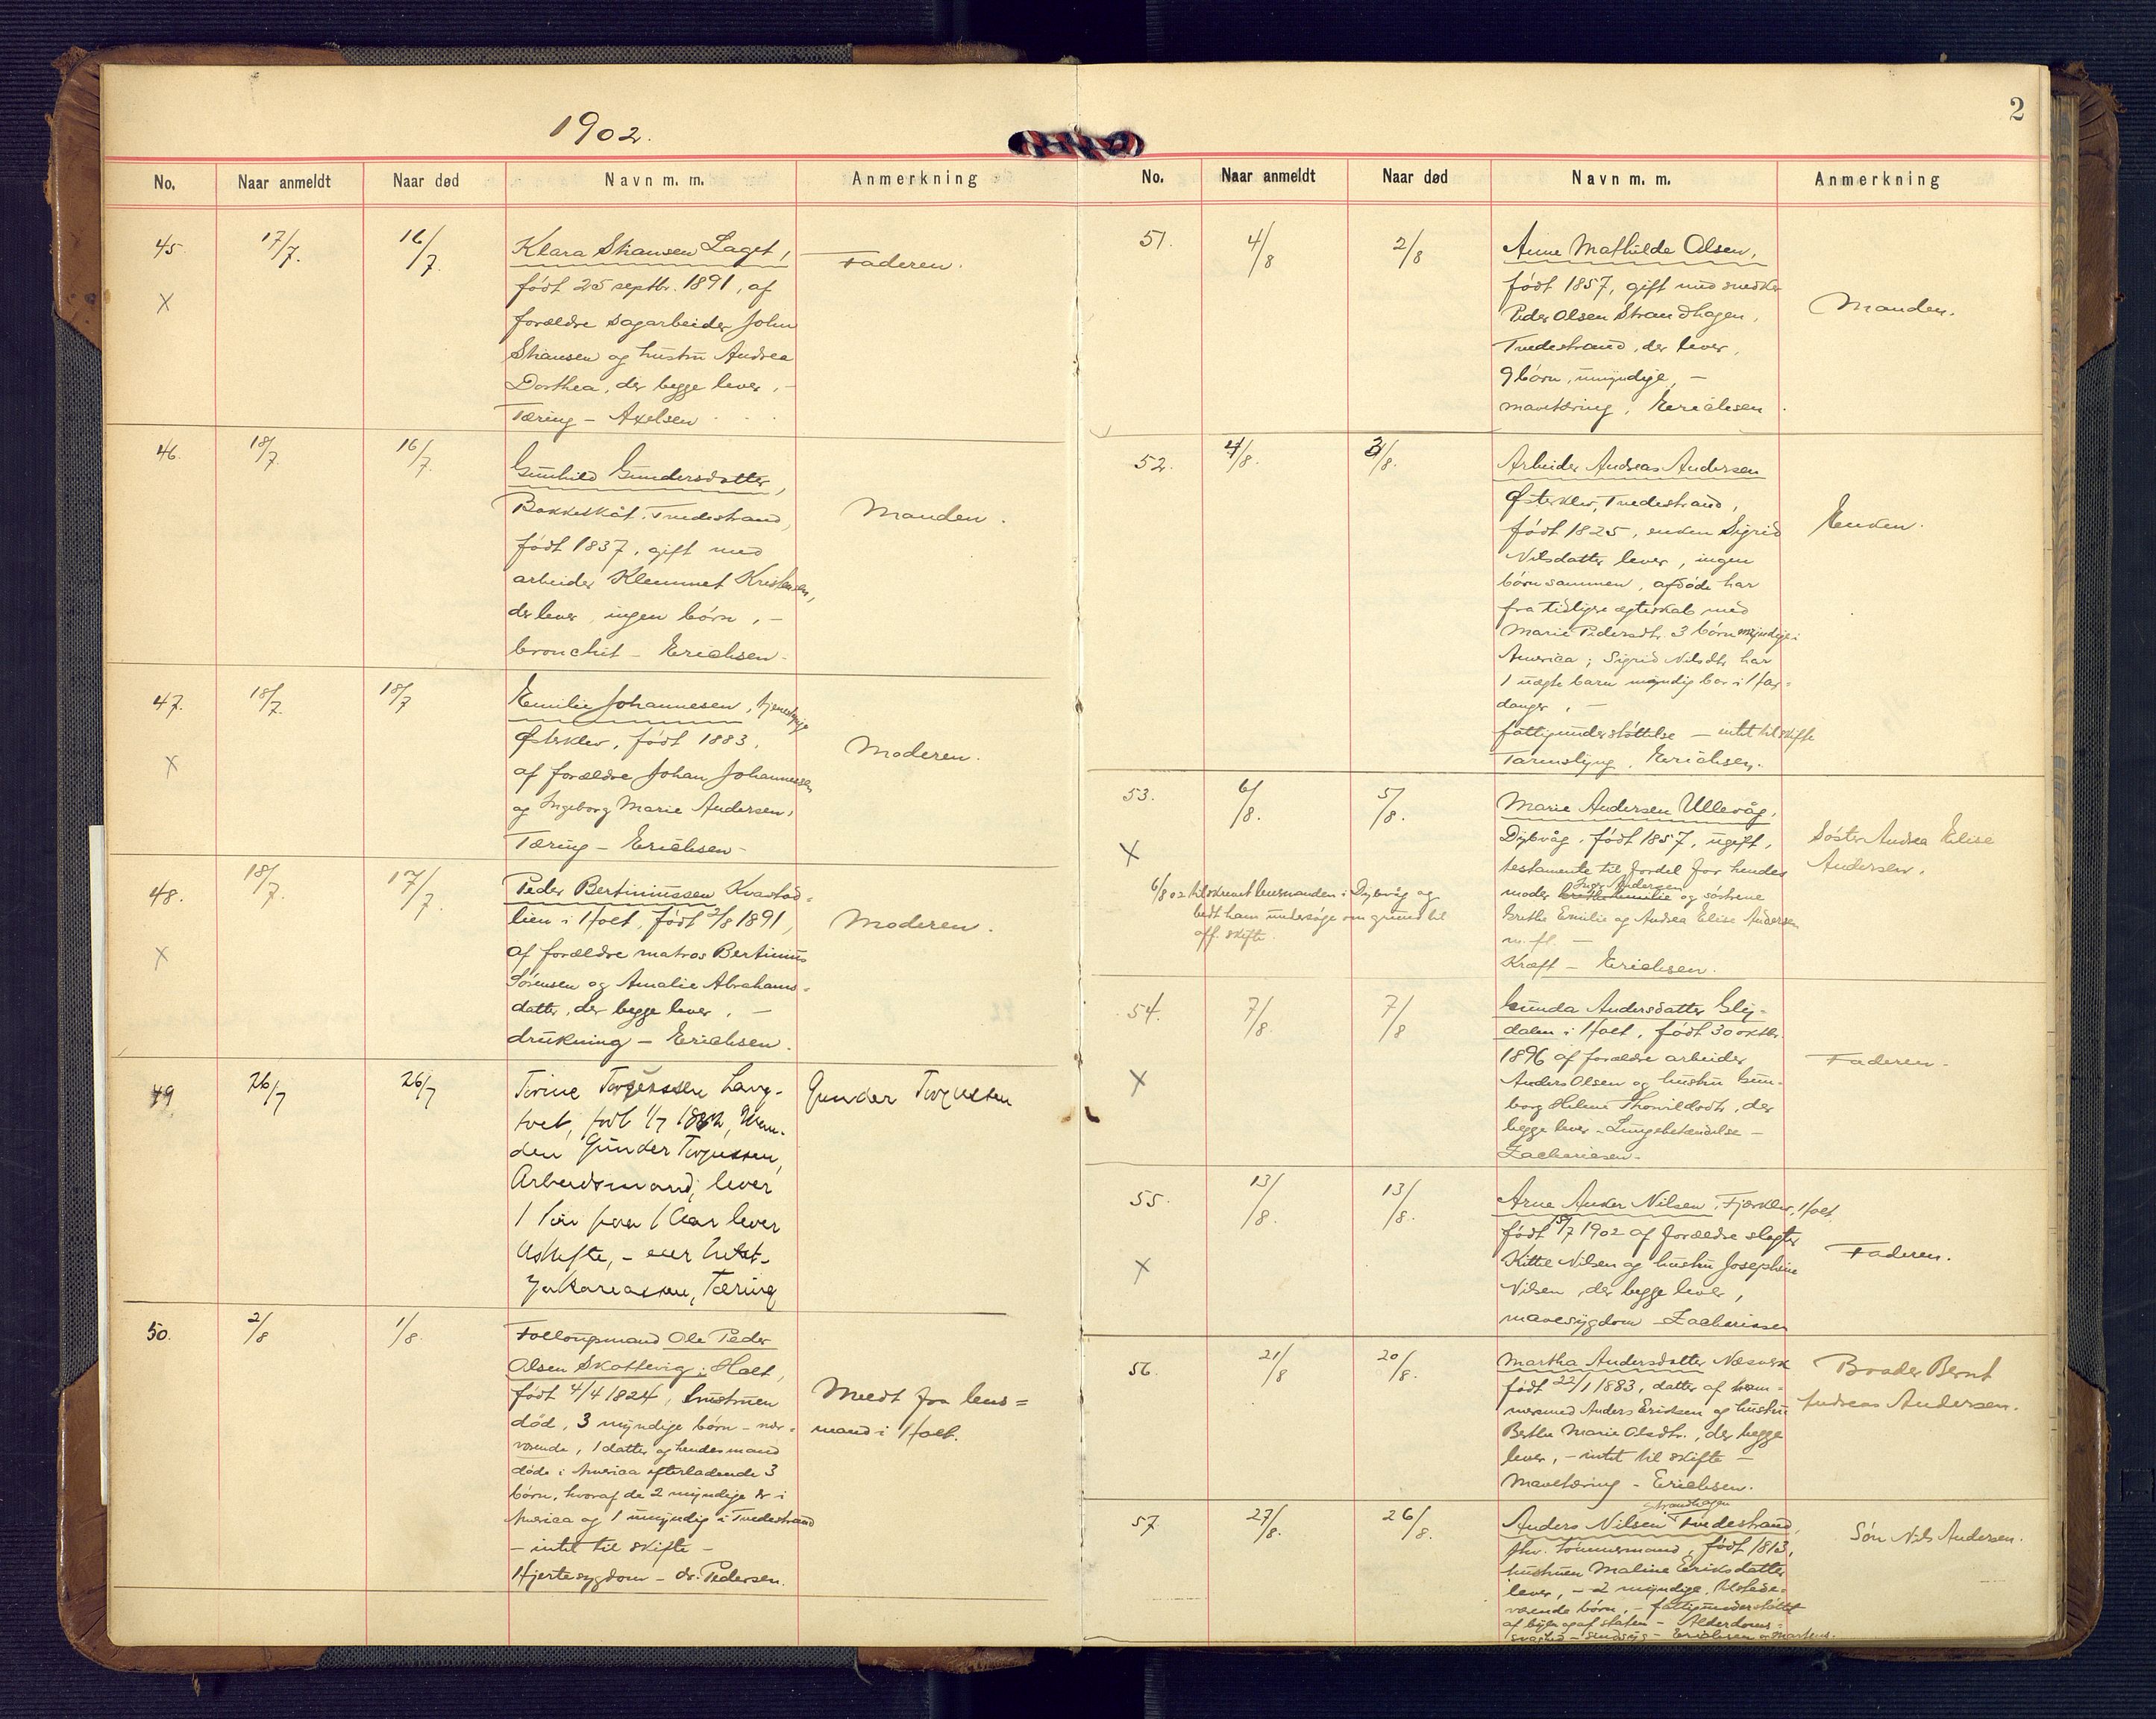 1902.
No. Naar anmeldt Naar død Navn m. m. Anmerkning
45 17/7. 16/7. Klara Stiansen Laget, Faderen.
X født 25 septbr. 1891, af
forældre sagarbeider John
Stiansen og hustru Andrea
Dorthea, der begge lever. –
Tæring – Axelsen
46. 18/7. 16/7. Gunhild Gundersdatter, Manden.
Bakkeskåt, Tvedestrand,
født 1837, gift med
arbeider Klemmet Kristensen,
der lever, ingen børn, –
bronchit – Erichsen –
47. 18/7. 18/7 Emilie Johannesen, tjenestepige Moderen.
X Østerklev, født 1883,
af forældre Johan Johannesen
og Ingeborg Marie Andersen,
Tæring – Erichsen –
48. 18/7. 17/7. Peder Bertiniussen Kvastad- Moderen.
X lien i Holt, født 2/8 1891,
af forældre matros Bertinius
Sørensen og Amalie Abrahams-
datter, der begge lever. –
drukning – Erichsen.
49 26/7 26/7 Torine Lang- Gunder
tvet, født 1/7
den Gunder
Arbeidsmand, lever
1 lever
Tæring
50. 2/8 1/8. Follougsmand Ole Peder Meldt fra lens=
Olsen Skottevig i Holt, mand i Holt.
født 4/4 1824, hustruen
død, 3 myndige børn – nær-
værende, 1 datter og hendes mand
døde i America efterladende 3
børn, hvoraf de 2 myndige er i
America og 1 umyndig i Tvedestrand
– intet til skifte –
Hjertesygdom – dr. Pedersen.
2
No. Naar anmeldt Naar død Navn m. m. Anmerkning
51. 4/8 2/8 Anne Mathilde Olsen, Manden.
født 1857, gift med snedker
Peder Olsen Strandhagen,
Tvedestrand, der lever,
9 børn, umyndige, –
mavetæring, Erichsen
52. 4/8. 3/8. Arbeider Andreas Andersen Enken.
Østerklev, Tvedestrand,
født 1825, enken Sigrid
Nilsdatter lever, ingen
børn sammen, afdøde har
fra tidligere ægteskab med
Marie Pedersdtr. 3 børn myndige i
America; Sigrid Nilsdtr. har
1 uægte barn myndig bor i Har-
danger, –
fattigunderstøttelse – intet til skifte
Tarmslyng. Erichsen.
53. 6/8. 5/8. Marie Andersen Ullevåg, Søster Andrea Elise
X Dybvåg, født 1857, ugift, Andersen.
testamente til fordel for hendes
moder Inger Andersen og søstrene
Grethe Emilie og Andrea Elise Andersen
m. fl. –
Kræft – Erichsen.
6/8 02 tilskrevet lensmanden i Dybvåg og
bedt ham undersøge om grund til
off. skifte.
54. 7/8. 7/8 Gunda Andersdatter Gly- Faderen.
X dalen i Holt, født 30 oktbr.
1896 af forældre arbeider
Anders Olsen og hustru Gun-
borg Helene Thorvildsdtr., der
begge lever – Lungebetændelse –
Zachariasen.
55. 13/8. 13/8. Arne Anker Nilsen, Fjærklev, Holt Faderen.
X født 15/7 1902 af forældre slagter
Kittil Nilsen og hustru Josephine
Nilsen, der begge lever,
mavesygdom – Zachariasen
56. 21/8 20/8. Martha Andersdatter Næsverk Broder Bernt
født 22/1 1883, datter af ham- Andreas Andersen.
mersmed Anders Eriksen og hustru
Berthe Marie Olsdtr., der begge
lever, – intet til skifte –
Mavetæring – Erichsen.
57 27/8. 26/8. Anders Nilsen Strandhagen Tvedestrand, Søn Nils Andersen.
fhv. tømmermand, født 1813,
hustruen Maline Eriksdatter
lever, – 2 myndige, tilstede-
værende børn, – fattigunderstøttet
af byen og af staten – Alderdoms-
svaghed – sindssyg – Erichsen og Martens.